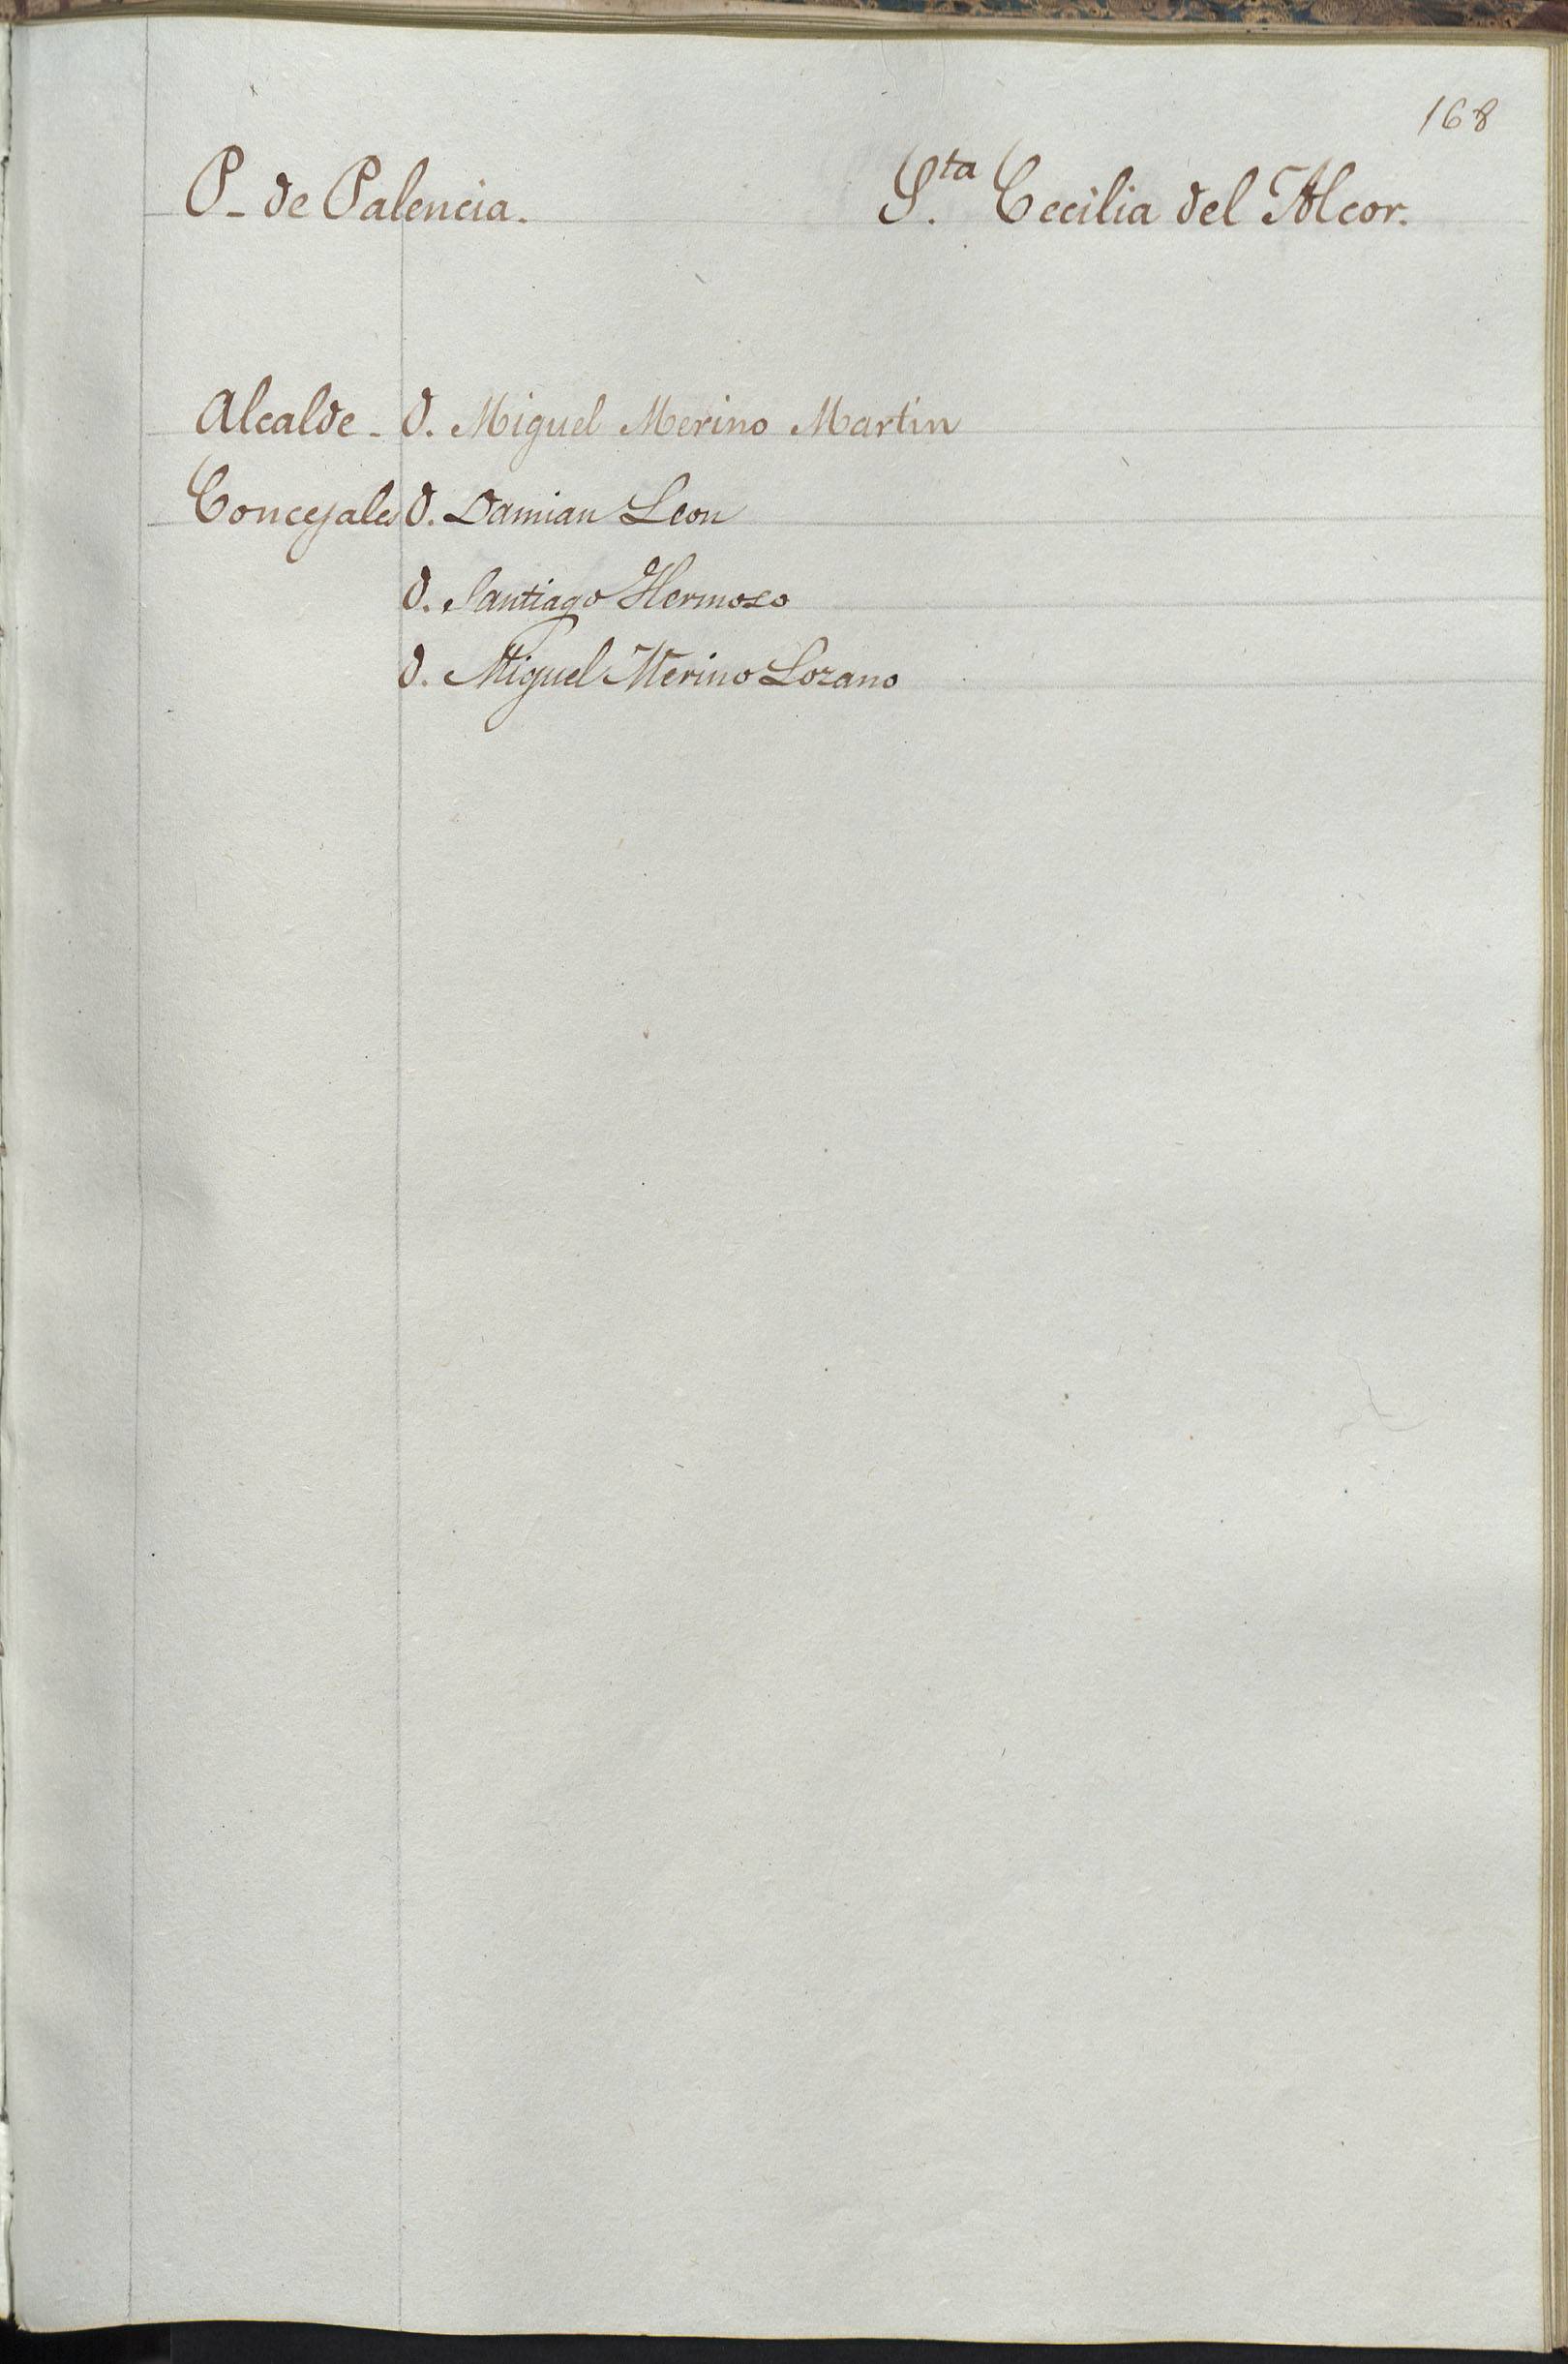 168
P- de Palencia. Sta. Cecilia del Alcor.
Alcalde - D. Miguel Merino Martin
Concejales D. Damian Leon
D. Santiago Hermoso
D. Miguel Merino Lozano